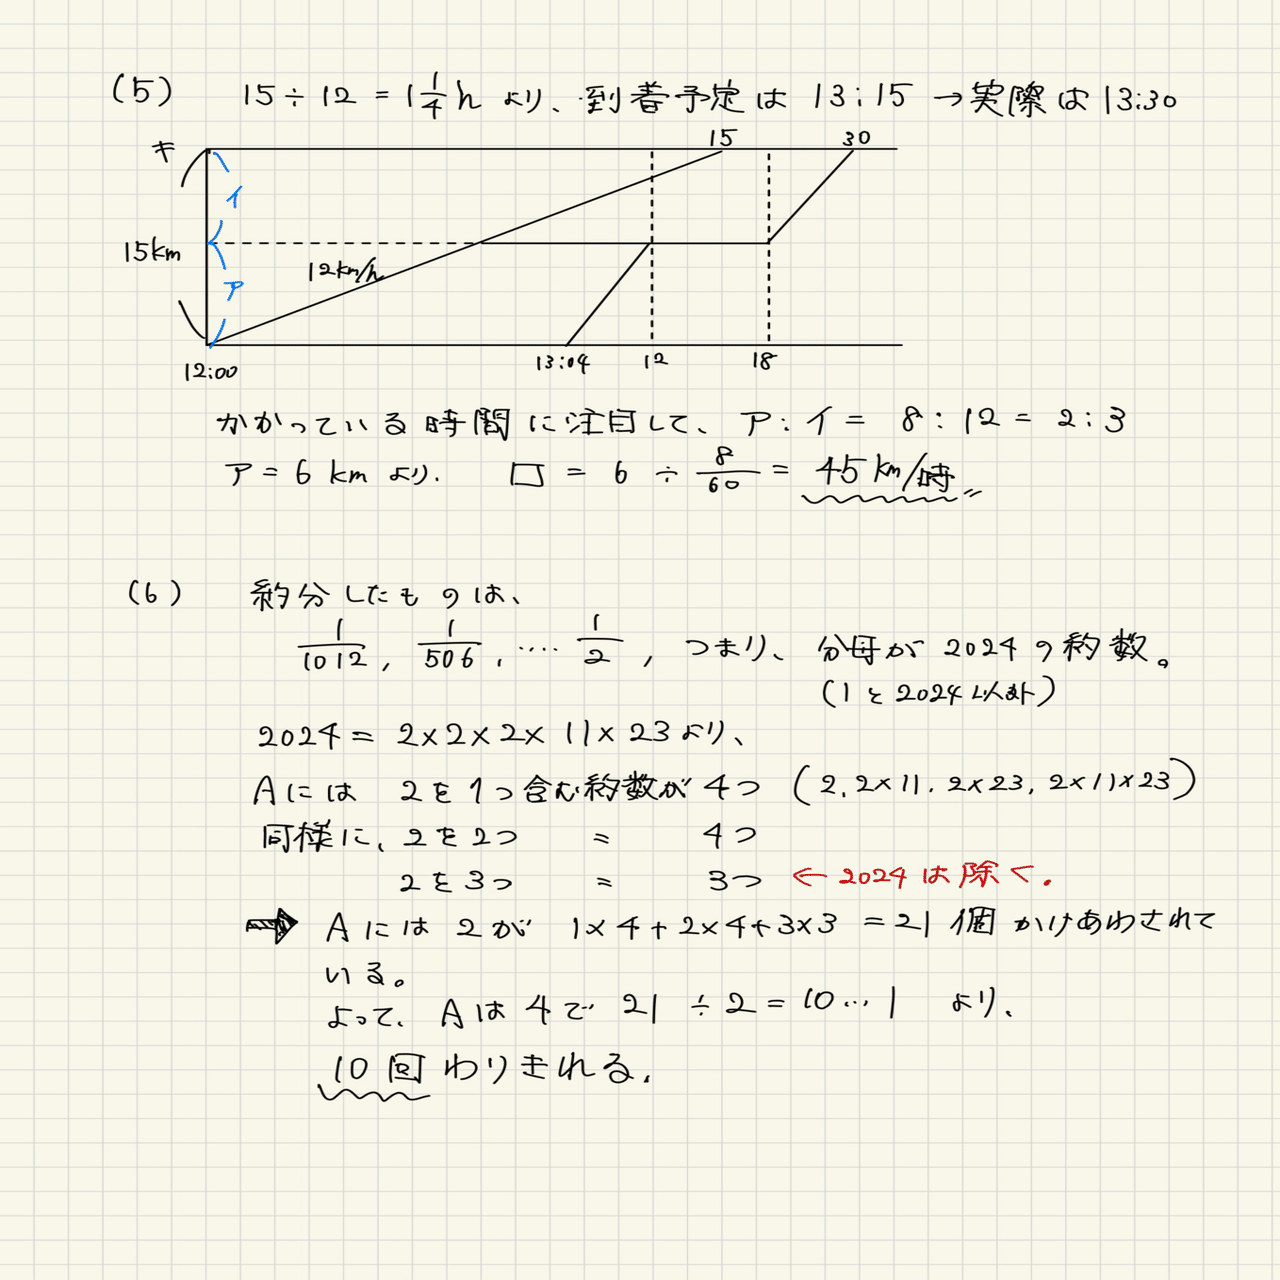 (5) 15÷12 = 1 1/4 h より、到着予定は 13:15 →実際は 13:30
15 30
キ
イ
15km
12km/h
ア
12:00 13:04 12 18
かかっている時間に注目して、ア:イ = 8 : 12 = 2 : 3
ア = 6 km より. □ = 6 ÷ 8/60 = 45 km/時〃
(6) 約分したものは、
1/1012, 1/506, ‥‥ 1/2, つまり、分母が 2024 の約数。
(1 と 2024 以外)
2024 = 2×2×2×11×23 より、
A には 2を1つ含む約数が 4つ (2, 2×11, 2×23, 2×11×23)
同様に、2を2つ 〃 4つ
2を3つ 〃 3つ ← 2024 は除く.
➡ A には 2が 1×4+2×4+3×3 = 21 個 かけあわされて
いる。
よって、A は 4で 21 ÷ 2 = 10 … 1 より、
10 回 わりきれる.